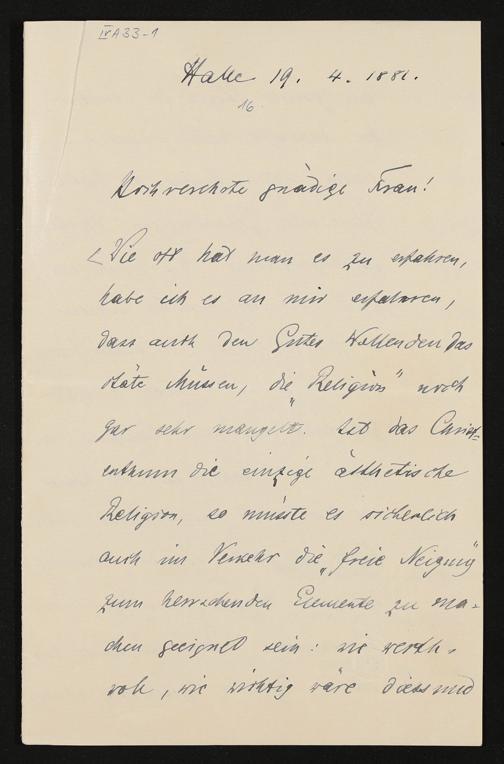 IV A 33-1
Halle 19. 4. 1881.
16.
Hochverehrte gnädige Frau!
Wie oft hat man es zu erfahren,
habe ich es an mir erfahren,
dass auch den Gutes Wollenden das
stäte Müssen, die "Religion" noch
gar sehr mangelt. Ist das Christ=
enthum die einzige ästhetische
Religion, so müsste es sicherlich
auch im Verkehr die "freie Neigung"
zum herrschenden Elemente zu ma=
chen geeignet sein: wie werth=
voll, wie wichtig wäre diess und